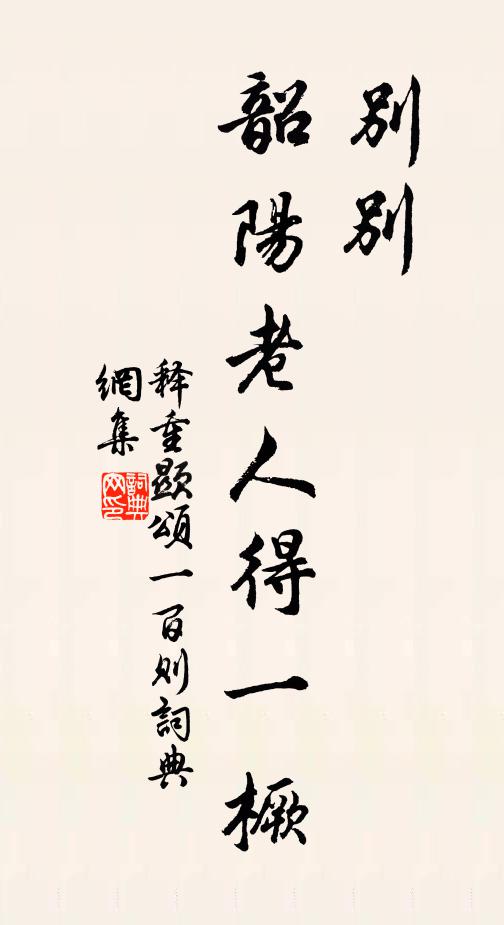 別別
韶陽老人得一橛
释重顯頌一百則詞典
網集
詞典
网印